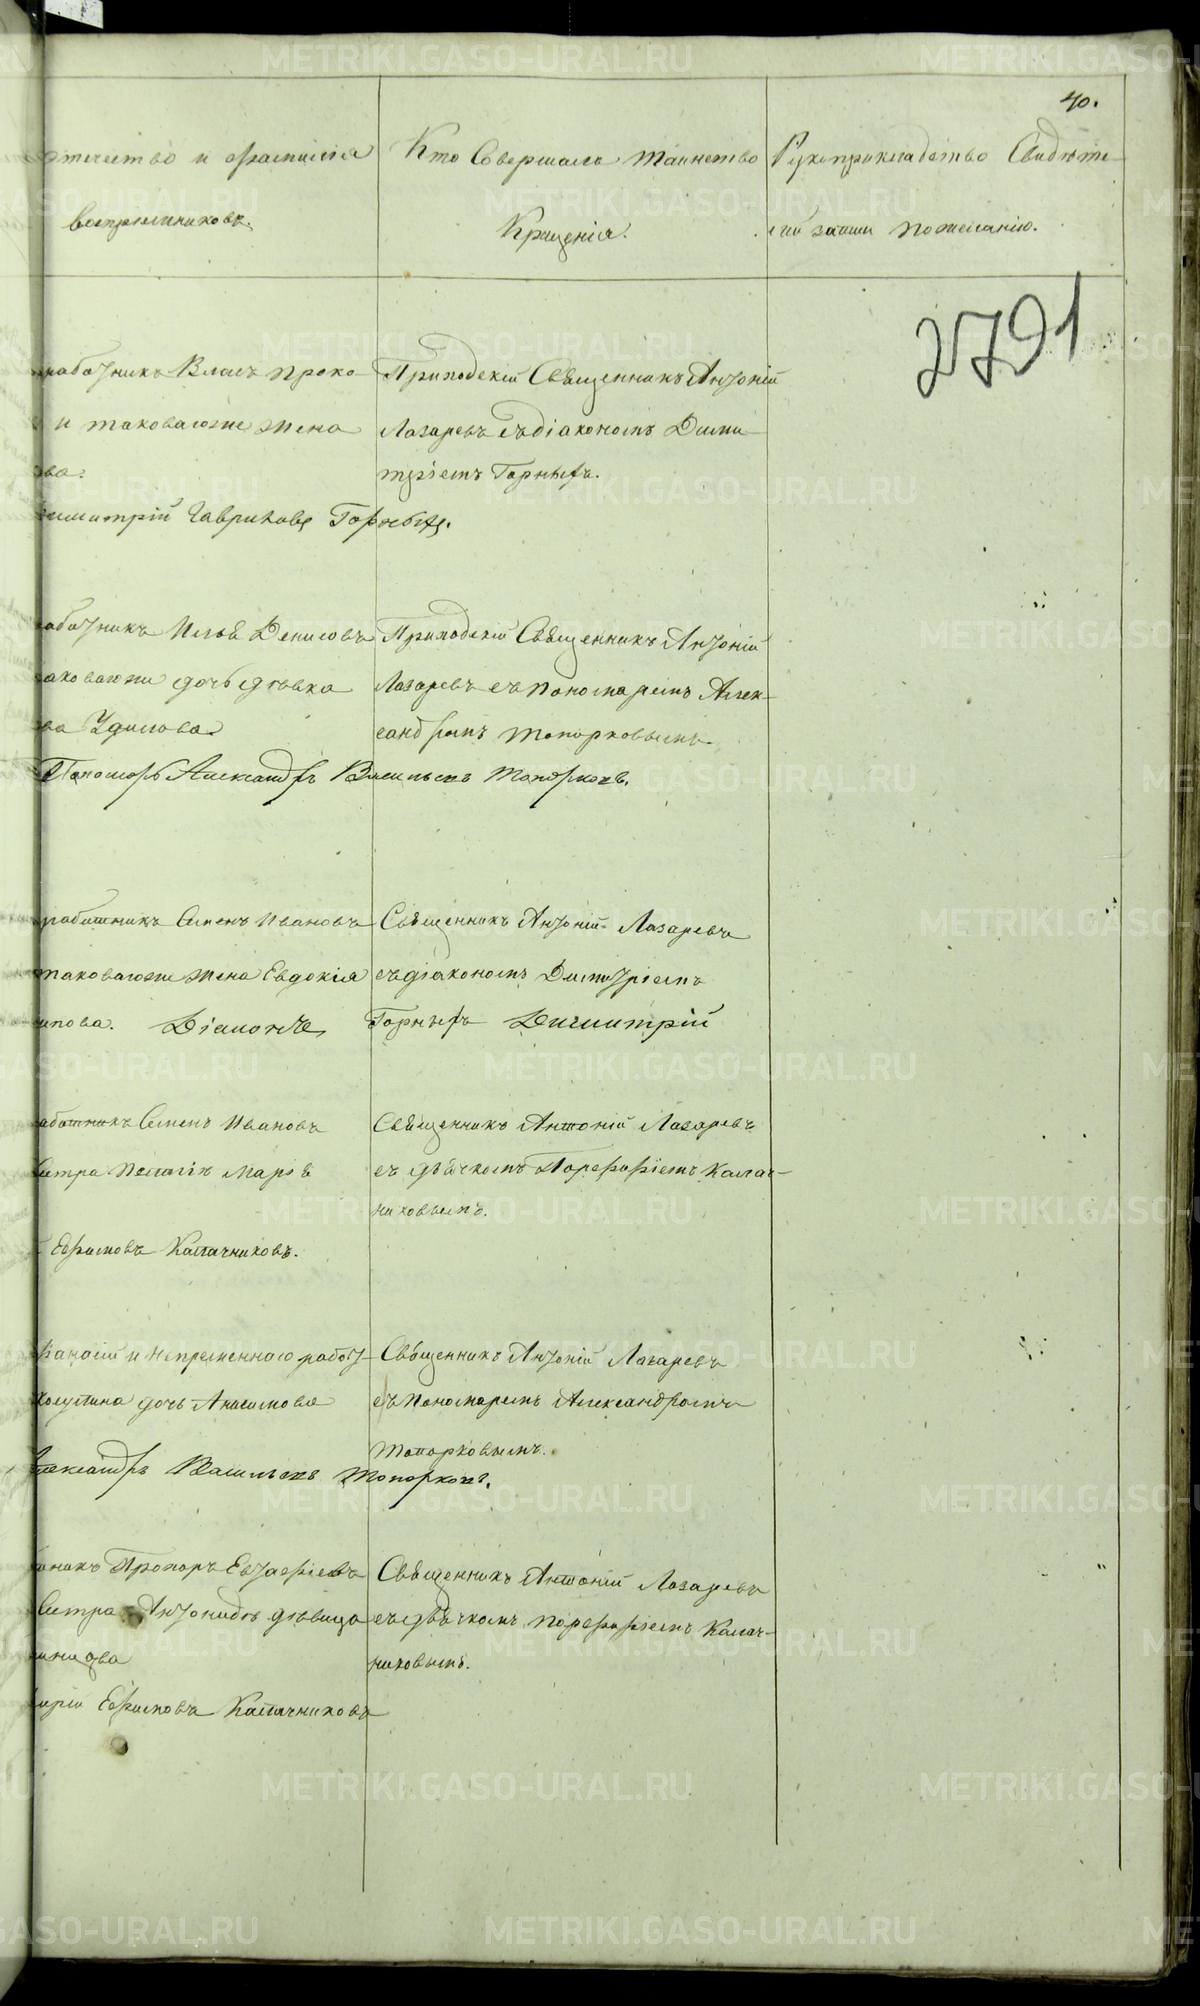 40.
отчество и фамилія
воспріемниковъ.
Кто совершалъ таинство
Крещенія.
Рукоприкладство Свидѣте-
лей записи по желанію.
2791
работникъ Власъ Проко-
и таковагоже жена
ва.
имитрій Гавриловъ Горныхъ.
Приходскій Священникъ Антоній
Лазаревъ съ діакономъ Дими-
тріемъ Горныхъ.
аботникъ Илья Денисовъ
аковагоже дочь дѣвка
ва Удилова
Пономарь Александръ Васильевъ Топорковъ.
Приходскій Священникъ Антоній
Лазаревъ съ пономаремъ Алек-
сандромъ Топорковымъ.
работникъ Семенъ Ивановъ
таковагоже жена Евдокія
ипова. Діаконъ
Священникъ Антоній Лазаревъ
съ діакономъ Димитріемъ
Горныхъ Димитрій
аботникъ Семенъ Ивановъ
естра Пелагія Марѳ
Ефимовъ Калачниковъ.
Священникъ Антоній Лазаревъ
съ дьячкомъ Порфиріемъ Калач-
никовымъ.
и непременнаго работ-
дочь Анисимова
лександръ Васильевъ Топорковъ.
Священникъ Антоній Лазаревъ
съ пономаремъ Александромъ
Топорковымъ.
никъ Прохоръ Евстафіевъ
Сестра Антонида дѣвица
фирій Ефимовъ Калачниковъ
Священникъ Антоній Лазаревъ
съ дьячкомъ Порфиріемъ Калач-
никовымъ.
METRIKI.GASO-URAL.RU